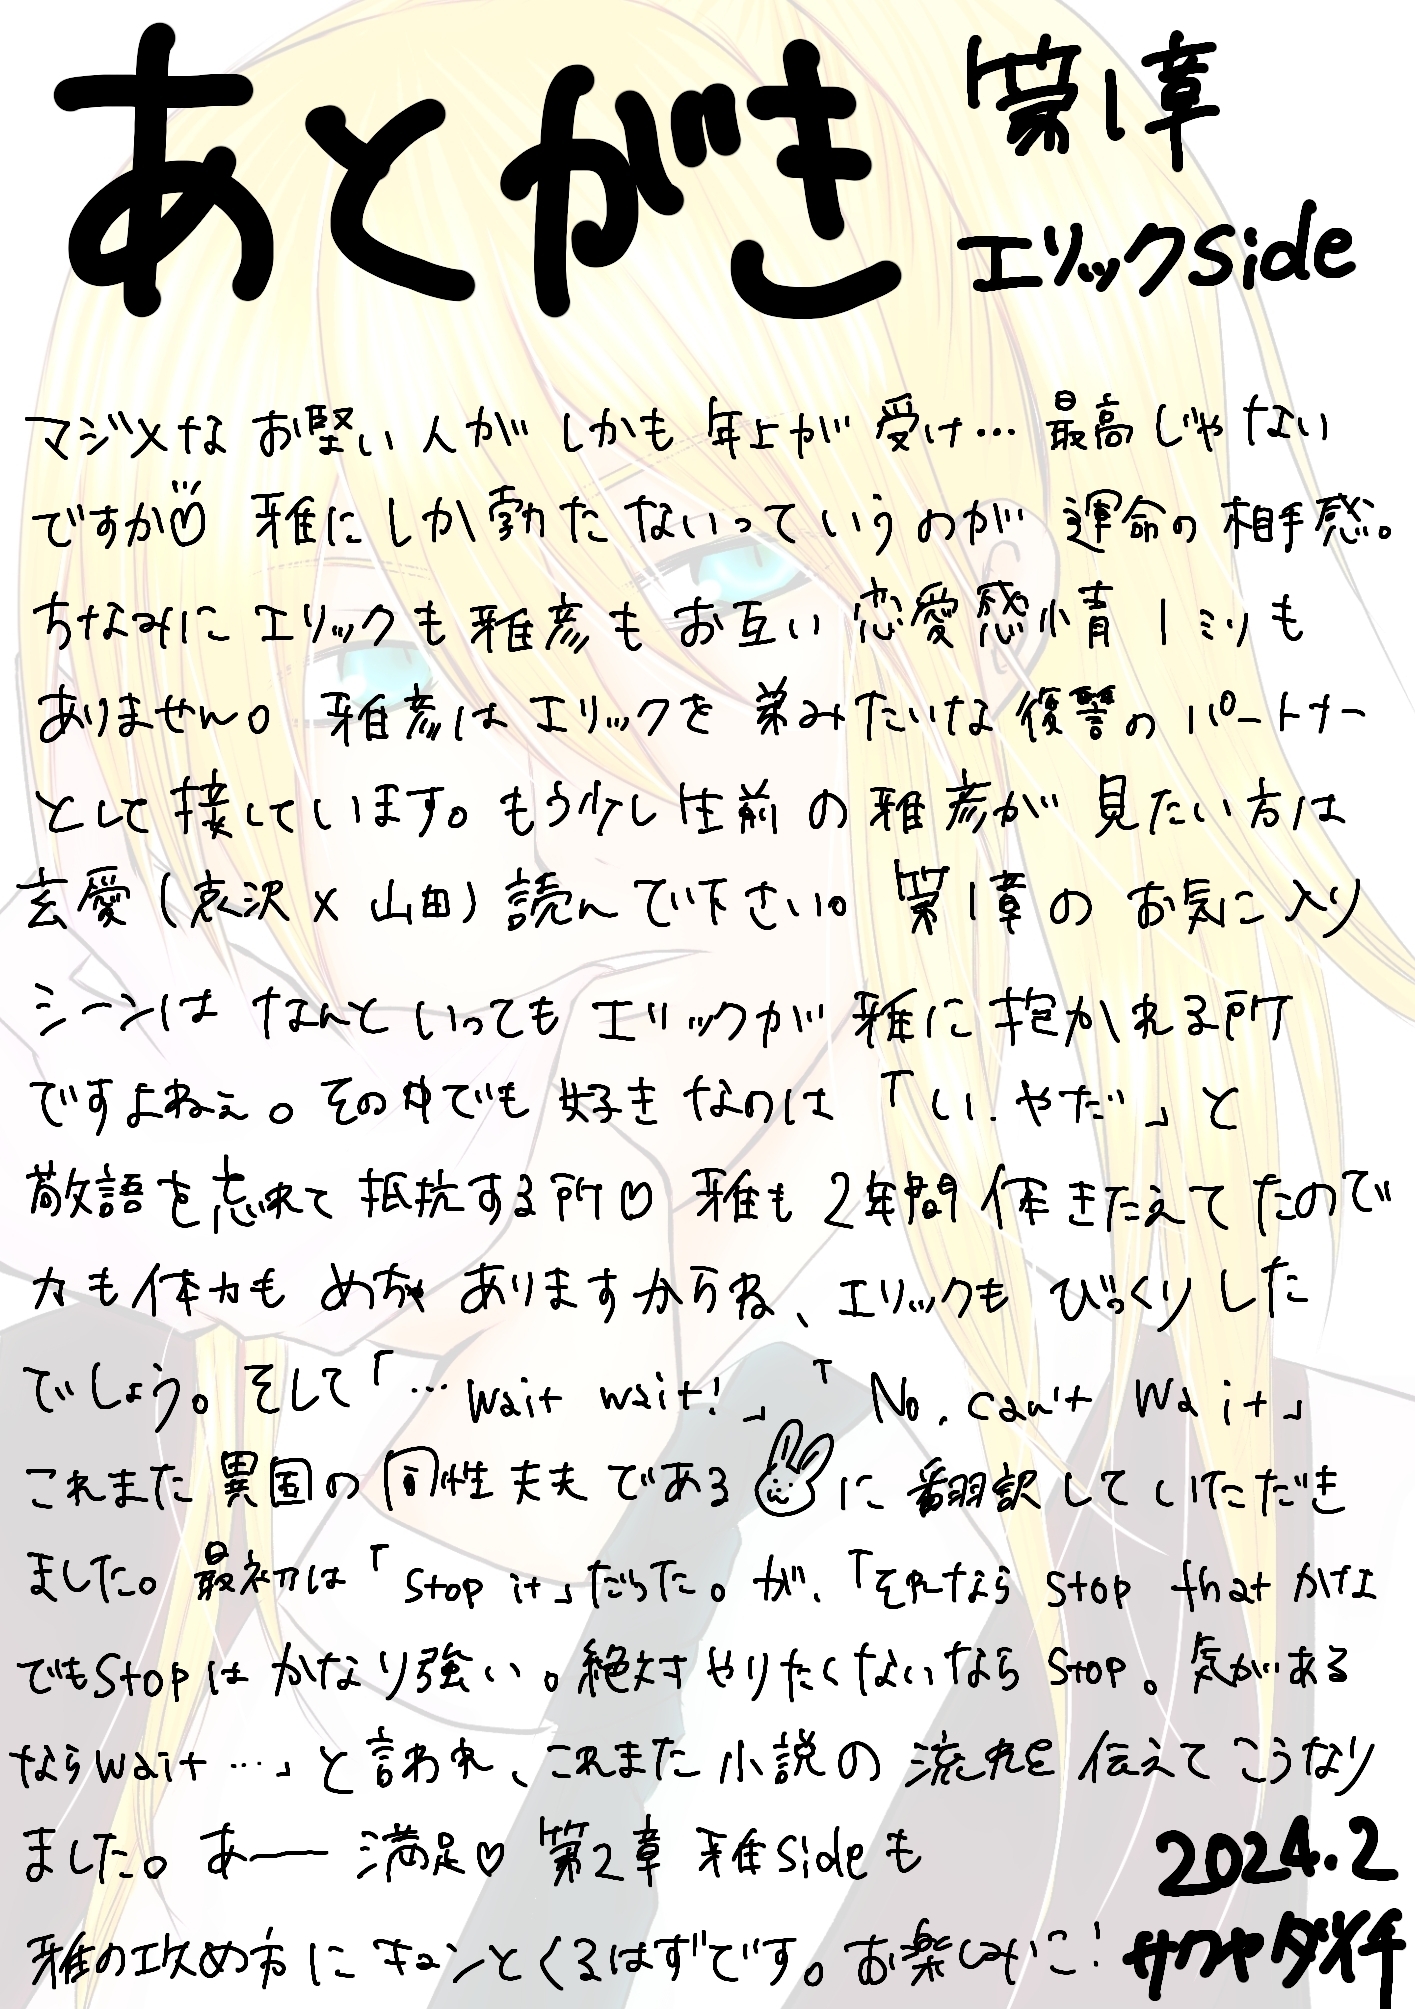 あとがき 第1章
エリックside
マジメな お堅い 人が しかも 年上が 受け… 最高じゃない
ですか♡ 雅にしか勃たないっていうのが 運命の相手感。
ちなみに エリックも 雅彦も お互い 恋愛感情 1ミリも
ありません。 雅彦は エリックを 弟みたいな 復讐の パートナー
として 接しています。もう少し 生前の 雅彦が 見たい方は
玄愛(哀沢×山田)読んで下さい。 第1章の お気に入り
シーンは なんといっても エリックが 雅に 抱かれる所
ですよねぇ。その中でも 好きなのは 「い、やだ」と
敬語を忘れて 抵抗する所♡ 雅も 2年間 体きたえてたので
力も体力も めちゃ ありますからね、エリックも びっくりした
でしょう。そして「…wait wait!」「No, can't wait」
これまた 異国の 同性夫夫である に 翻訳していただき
ました。最初は「stop it」だった。が、「それなら stop that かな
でもstopは かなり強い。絶対やりたくないなら stop。気がある
ならwait…」と言われ、これまた 小説の 流れを 伝えて こうなり
ました。あー 満足♡ 第2章 雅sideも
雅の攻め方に キュンとくるはずです。お楽しみに!
2024.2
サクヤダイチ